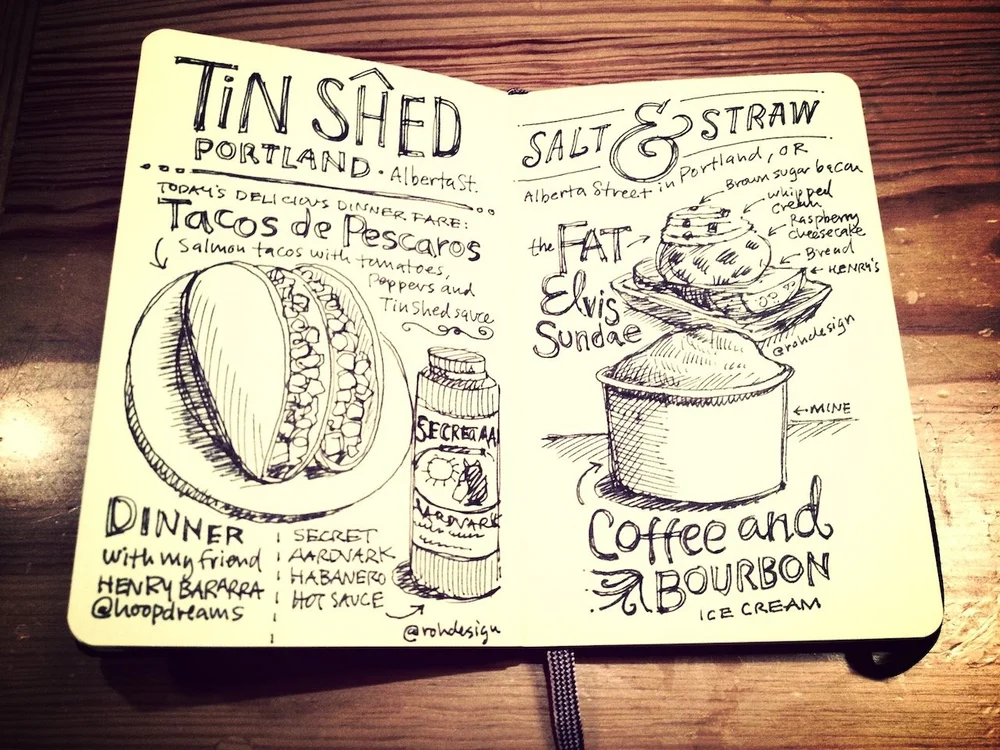 TiN SHED
PORTLAND • Alberta St.
TODAY'S DELICIOUS DINNER FARE:
Tacos de Pescaros
Salmon tacos with tomatoes,
Peppers and
Tin Shed sauce
SECRET AA
AARDVARK
DINNER
with my friend
HENRY BARARRA
@hoopdreams
SECRET
AARDVARK
HABANERO
HOT SAUCE
@rohdesign
SALT & STRAW
Alberta Street in Portland, OR
the FAT
Elvis
Sundae
Brown sugar bacon
whipped
cream
Raspberry
cheesecake
Bread
HENRY'S
@rohdesign
MINE
Coffee and
BOURBON
ICE CREAM